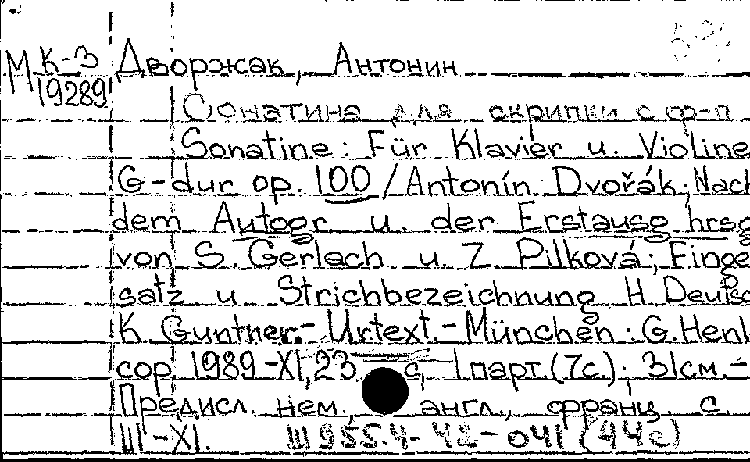 М К-3 Дворжак, Антонин
19289
Сонатина для скрипки с ф-п
Sonatine: Für Klavier u. Violine
G-dur op. 100 / Antonín Dvořák; Nach
dem Autogr u. der Erstausg hrsg
von S. Gerlach u. Z Pilková; Finge
satz u. Strichbezeichnung H. Deutsc
K. Guntner.- Urtext.- München: G. Henl
cop 1989 -XI, 23 с, 1 парт. (7с.); 31см.-
Предисл. нем., англ., франц. с
III-XI. Ш955.4-42-041 (44с)